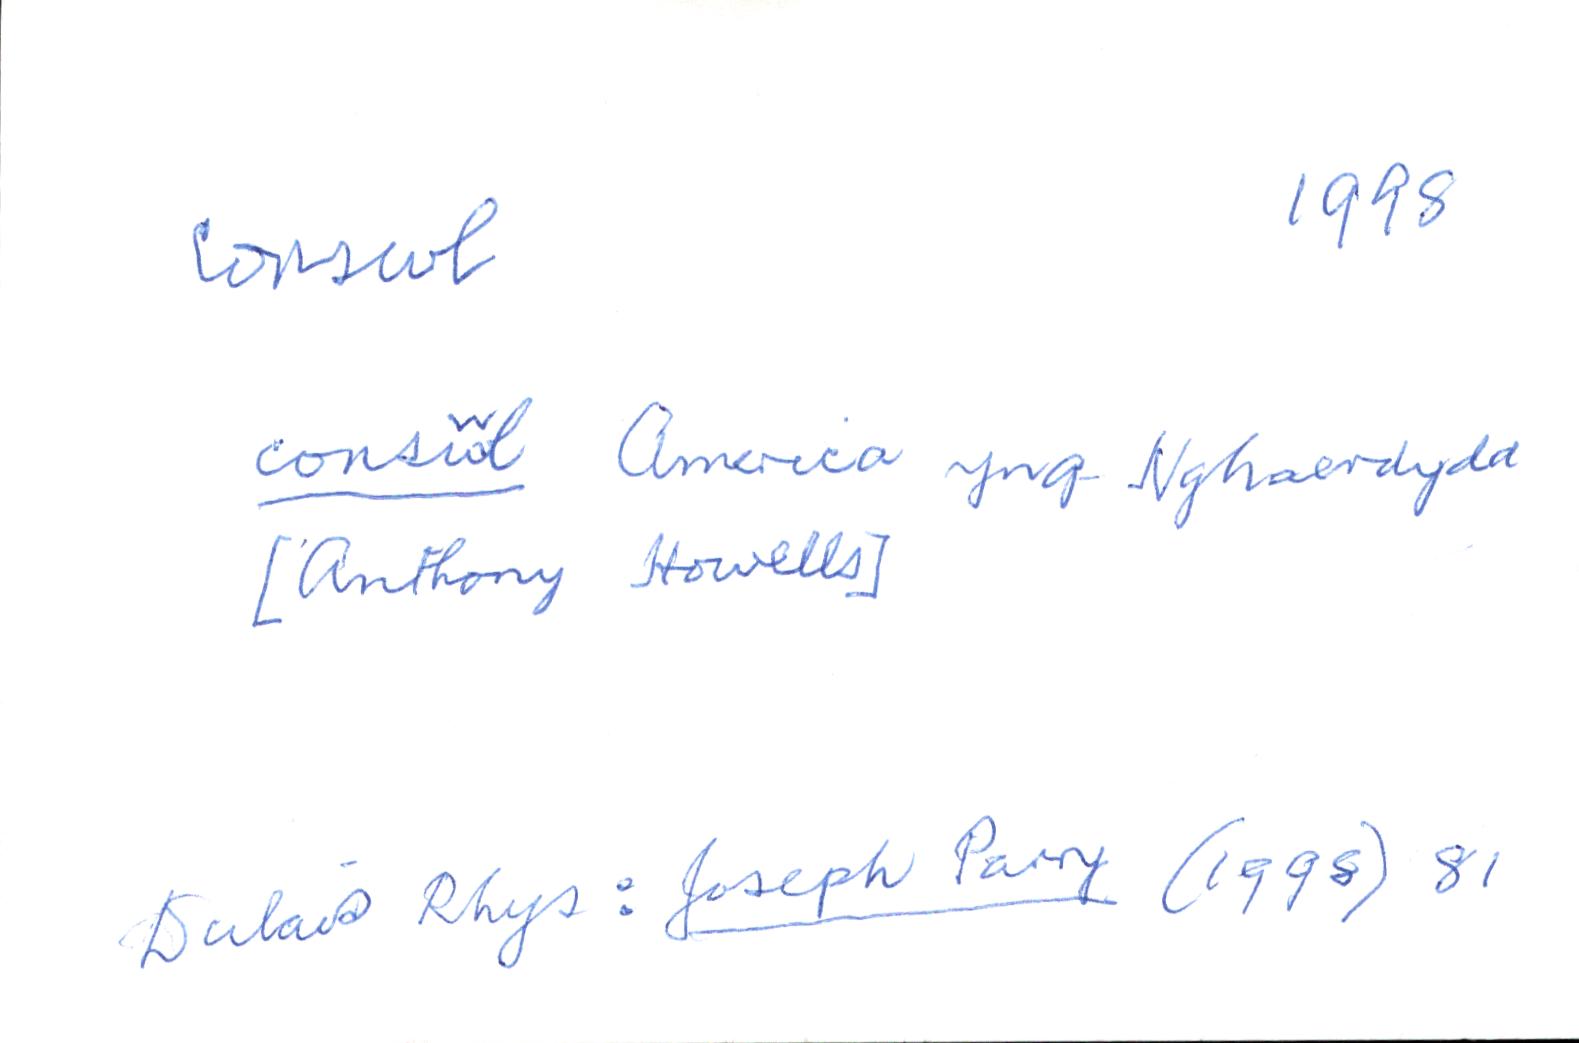 conswl 1998
conswl America yng Nghaerdydd
[Anthony Howells]
Dulais Rhys : Joseph Parry (1998) 81